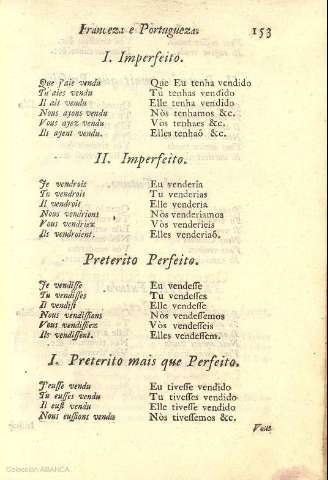 Franceza e Portugueza. 153
I. Imperfeito.
Que j'aie vendu Que Eu tenha vendido
Tu aies vendu Tu tenhas vendido
Il ait vendu Elle tenha vendido
Nous ayons vendu Nòs tenhamos &c.
Vous ayez vendu Vòs tenhaes &c.
Ils ayent vendu. Elles tenhaõ &c.
II. Imperfeito.
Je vendrois Eu venderia
Tu vendrois Tu venderias
Il vendroit Elle venderia
Nous vendrions Nòs venderiamos
Vous vendriez Vòs venderieis
Ils vendroient. Elles venderiaõ.
Preterito Perfeito.
Je vendisse Eu vendesse
Tu vendisses Tu vendesses
Il vendist Elle vendesse
Nous vendissions Nòs vendessemos
Vous vendissiez Vòs vendesseis
Ils vendissent. Elles vendessem.
I. Preterito mais que Perfeito.
J'eusse vendu Eu tivesse vendido
Tu eusses vendu Tu tivesses vendido
Il eust vendu Elle tivesse vendido
Nous eussions vendu Nòs tivessemos &c.
Vous
Colección ABANCA